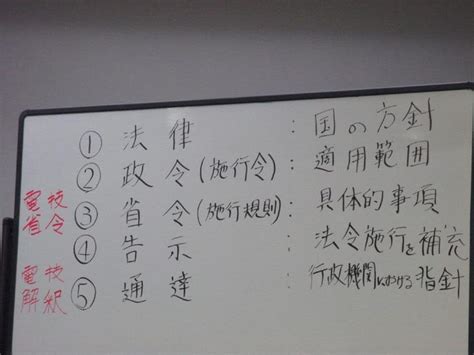 ① 法律 : 国の方針
② 政令(施行令) : 適用範囲
電技省令 ③ 省令(施行規則) : 具体的事項
④ 告示 : 法令施行を補充
電技解釈 ⑤ 通達 : 行政機関における指針